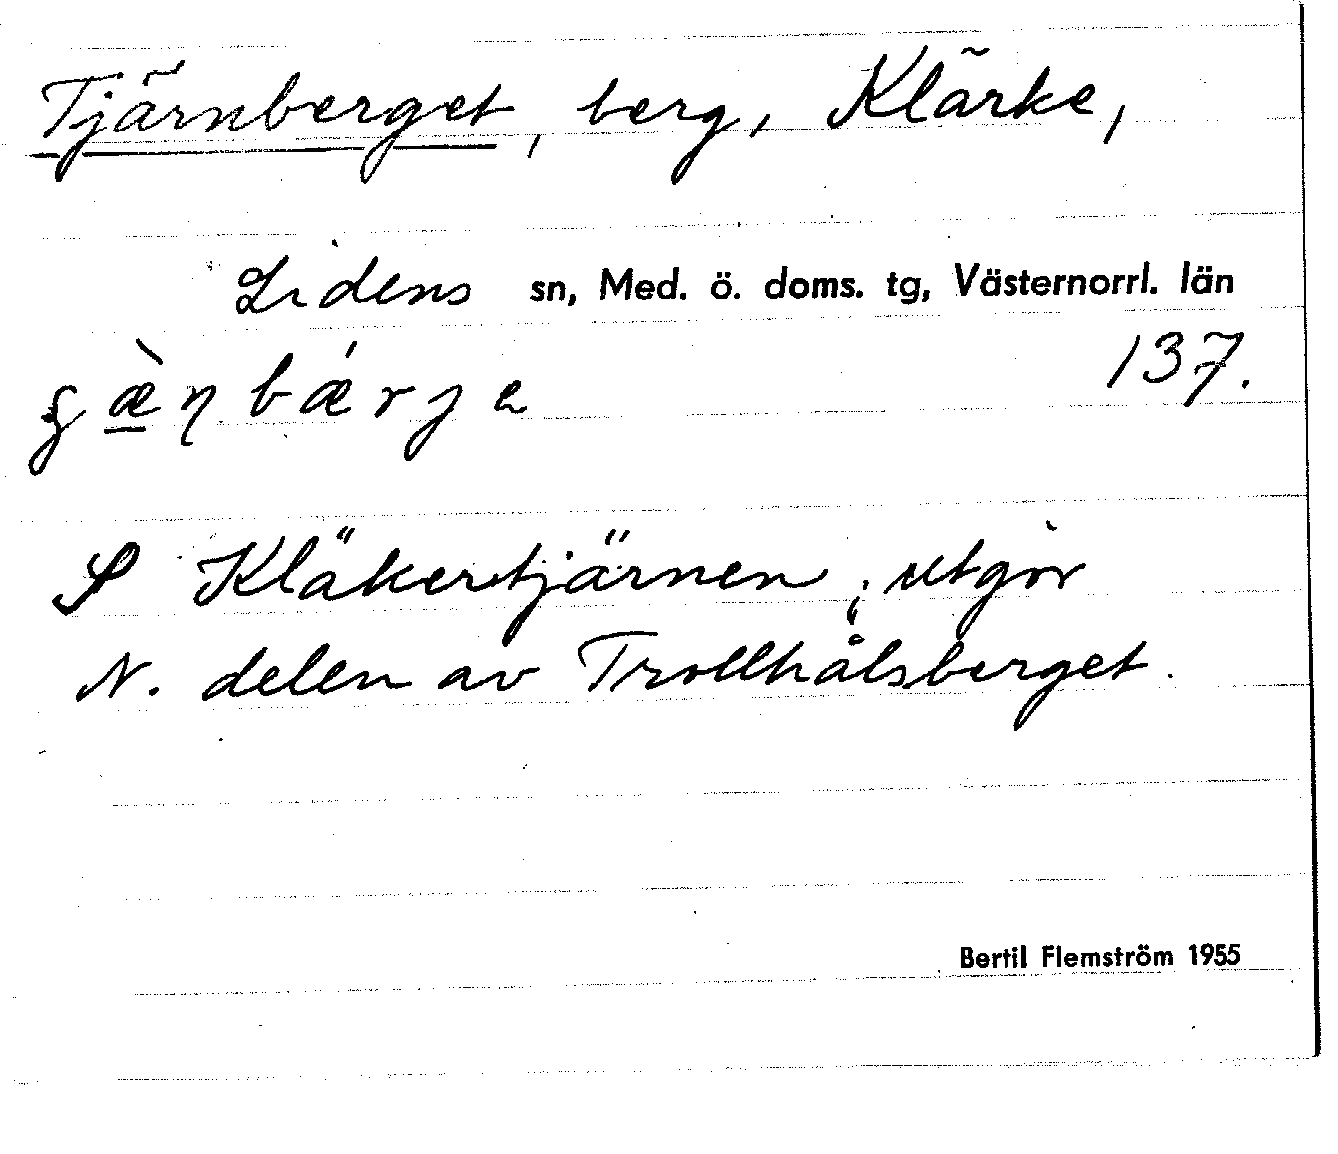 Tjärnberget, berg, Klärke,
Lidens sn, Med. ö. doms. tg, Västernorrl. län
137.
S Kläkertjärnen; utgör
N. delen av Trollhålsberget.
Bertil Flemström 1955